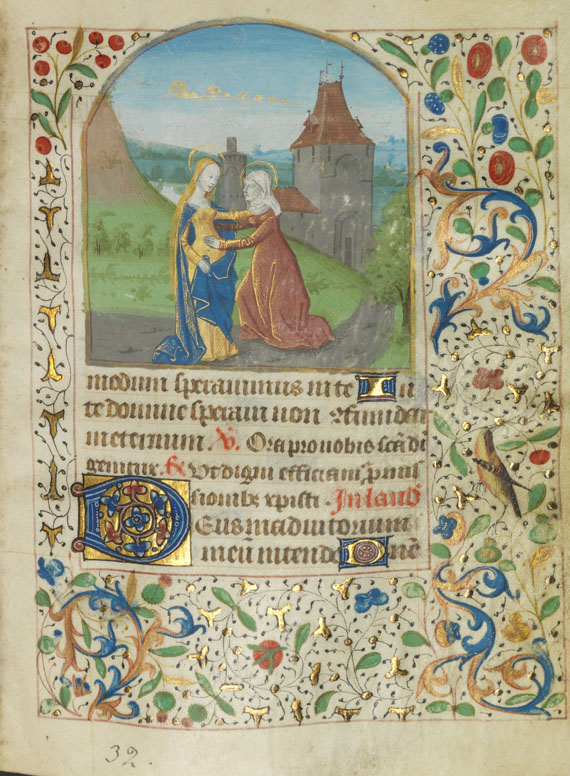 modum speravimus in te In
te domine speravi non confundar
in eternum V. Ora pro nobis scā dei
genitrix R Ut digni efficiam̄ p̄mis
sionibȝ xp̄isti. In laud
Deus in adiutorium
meū intende Dn̄e
32.